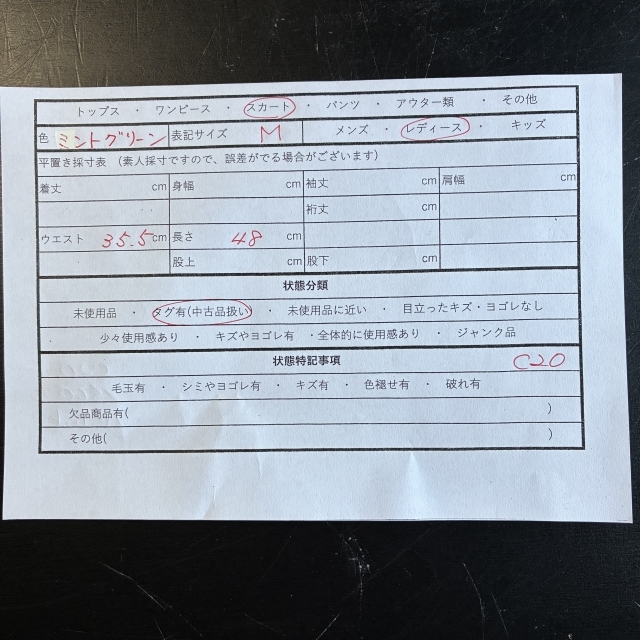 トップス ・ ワンピース ・ スカート ・ パンツ ・ アウター類 ・ その他
色 ミントグリーン 表記サイズ M メンズ ・ レディース ・ キッズ
平置き採寸表 (素人採寸ですので、誤差がでる場合がございます)
着丈 cm 身幅 cm 袖丈 cm 肩幅 cm
裄丈 cm
ウエスト 35.5cm 長さ 48 cm
股上 cm 股下 cm
状態分類
未使用品 ・ タグ有(中古品扱い) ・ 未使用品に近い ・ 目立ったキズ・ヨゴレなし
少々使用感あり ・ キズやヨゴレ有 ・全体的に使用感あり ・ ジャンク品
状態特記事項 C20
毛玉有 ・ シミやヨゴレ有 ・ キズ有 ・ 色褪せ有 ・ 破れ有
欠品商品有( )
その他( )